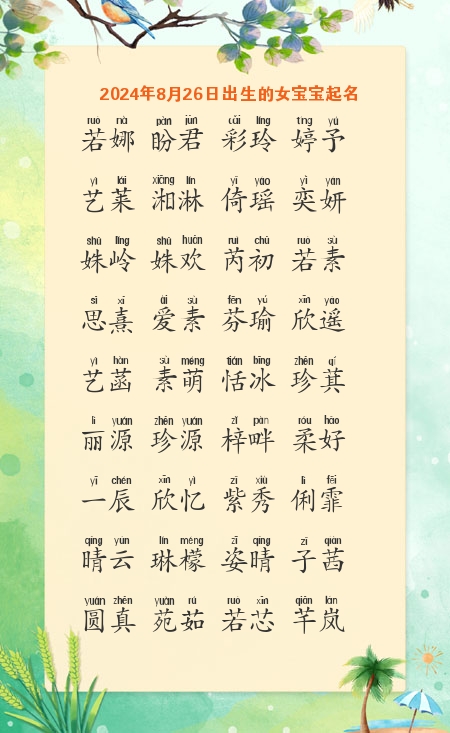 2024年8月26日出生的女宝宝起名
ruò nà pàn jūn cǎi líng tíng yú
若娜 盼君 彩玲 婷予
yì lái xiāng lín yǐ yáo yì yán
艺莱 湘淋 倚瑶 奕妍
shū lǐng shū huān ruì chū ruò sù
姝岭 姝欢 芮初 若素
sī xī ài sù fēn yú xīn yáo
思熹 爱素 芬瑜 欣遥
yì hàn sù méng tián bīng zhēn qí
艺菡 素萌 恬冰 珍萁
lì yuán zhēn yuán zǐ pàn róu hǎo
丽源 珍源 梓畔 柔好
yī chén xīn yì zǐ xiù lì fēi
一辰 欣忆 紫秀 俐霏
qíng yún lín méng zī qíng zǐ qiàn
晴云 琳檬 姿晴 子茜
yuán zhēn yuàn rú ruò xīn qiān lán
圆真 苑茹 若芯 芊岚